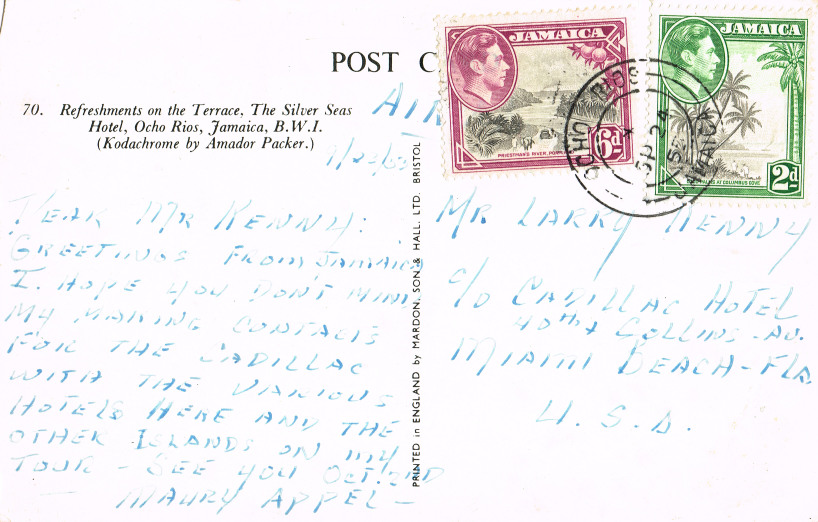 POST C
70. Refreshments on the Terrace, The Silver Seas
Hotel, Ocho Rios, Jamaica, B.W.I.
(Kodachrome by Amador Packer.)
AIR
JAMAICA
PRIESTMAN'S RIVER, PORTLAND
6d
JAMAICA
COLUMBUS COVE
2d
OCHO RIOS
SP 24
JAMAICA
DEAR MR KENNY:
GREETINGS FROM JAMAICA
I. HOPE YOU DON'T MIND
MY MAKING CONTACTS
FOR THE CADILLAC
WITH THE VARIOUS
HOTELS HERE AND THE
OTHER ISLANDS ON MY
TOUR - SEE YOU OCT. 2ND
- MAURY APPEL -
PRINTED IN ENGLAND by MARDON, SON & HALL, LTD. BRISTOL
MR. LARRY KENNY
c/o CADILLAC HOTEL
40TH & COLLINS - AV.
MIAMI BEACH - FLA.
U. S. A.